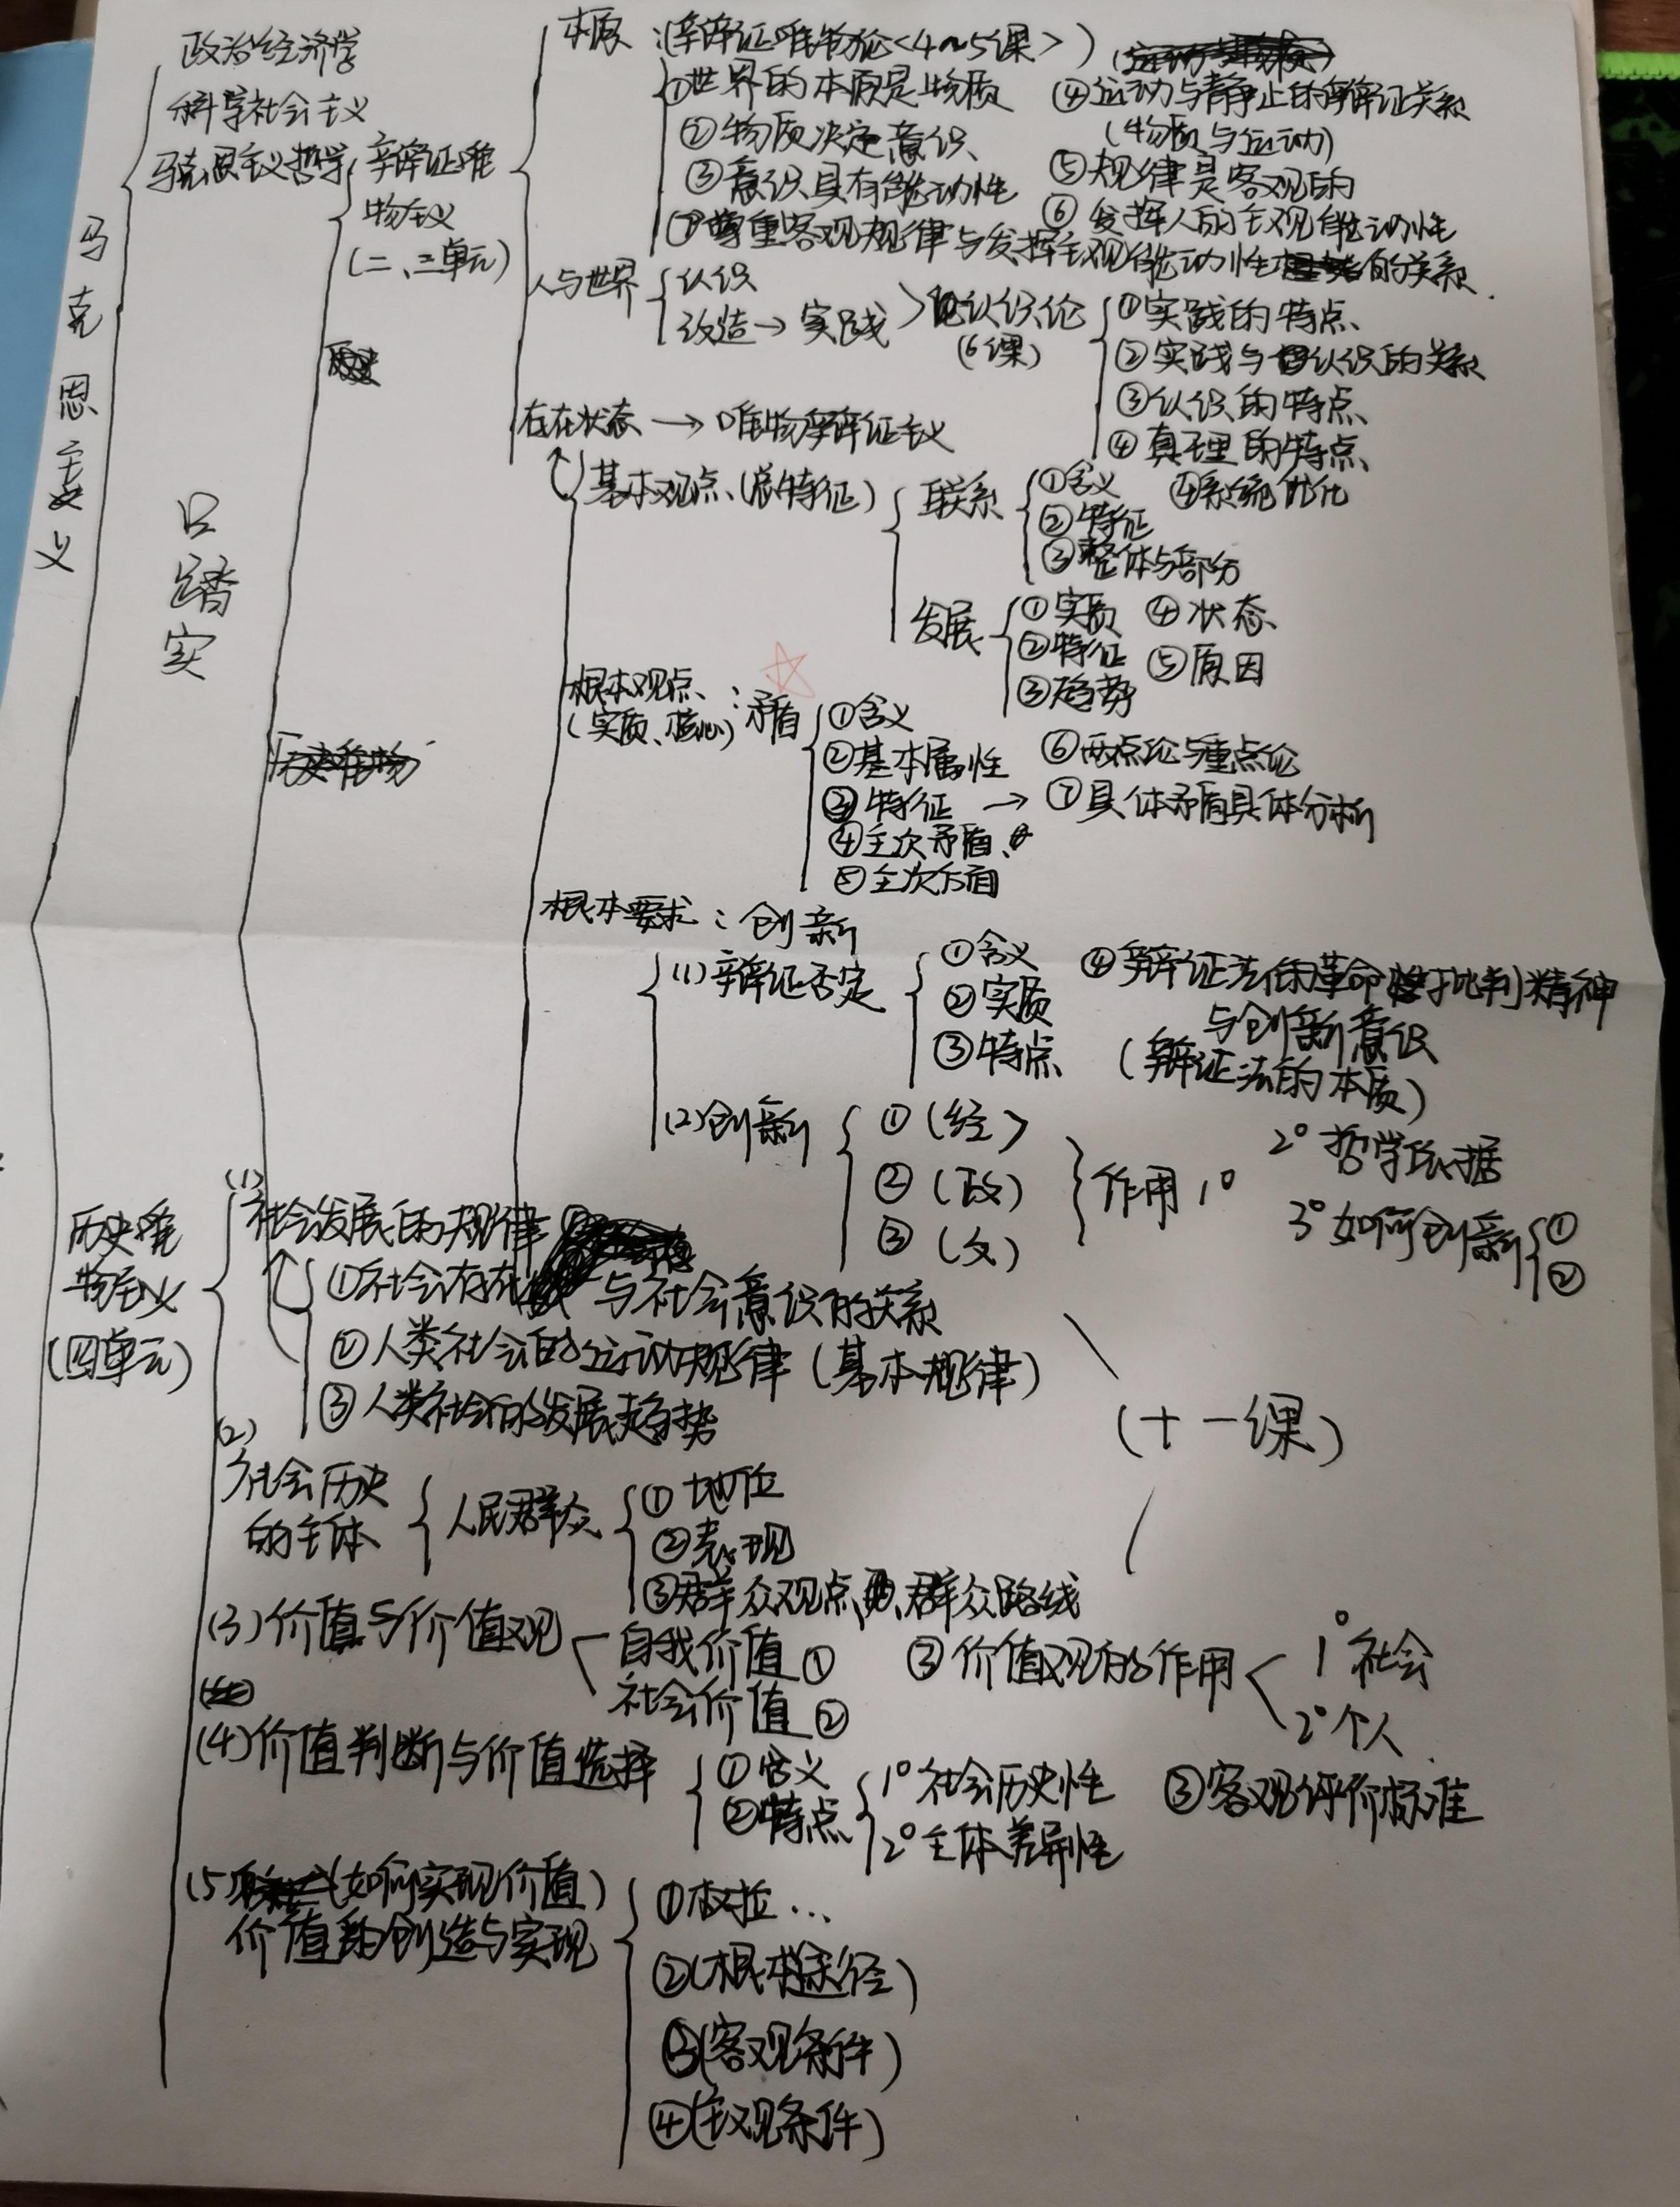 马克思主义
政治经济学
科学社会主义
马克思主义哲学
辩证唯
物主义
(二、三单元)
口踏实
本原：(辩证唯物论<4~5课>)
①世界的本原是物质
②物质决定意识
③意识具有能动性
④运动与静止的辩证关系
(物质与运动)
⑤规律是客观的
⑥发挥人的主观能动性
⑦尊重客观规律与发挥主观能动性的关系
人与世界
认识
改造→实践
认识论
(6课)
①实践的特点
②实践与认识的关系
③认识的特点
④真理的特点
存在状态→唯物辩证主义
基本观点(总特征)
联系
①含义
②特征
③整体与部分
④系统优化
发展
①实质
②特征
③趋势
④状态
⑤原因
根本观点：矛盾
(实质、核心)
①含义
②基本属性
③特征→⑦具体矛盾具体分析
④主次矛盾
⑤主次方面
⑥两点论与重点论
根本要求：创新
(1)辩证否定
①含义
②实质
③特点
④辩证法的革命批判精神
与创新意识
(辩证法的本质)
(2)创新
①(经)
②(政)
③(文)
作用1°
2°哲学依据
3°如何创新①
②
历史唯
物主义
(四单元)
(1)
社会发展的规律
①社会存在与社会意识的关系
②人类社会的运动规律(基本规律)
③人类社会的发展趋势
(十一课)
(2)
社会历史
的主体
人民群众
①地位
②表现
③群众观点、群众路线
(3)价值与价值观
自我价值①
社会价值②
③价值观的作用
1°社会
2°个人
(4)价值判断与价值选择
①含义
②特点
1°社会历史性
2°主体差异性
③客观评价标准
(5)(如何实现价值)
价值的创造与实现
①...
②(根本途径)
③(客观条件)
④(主观条件)